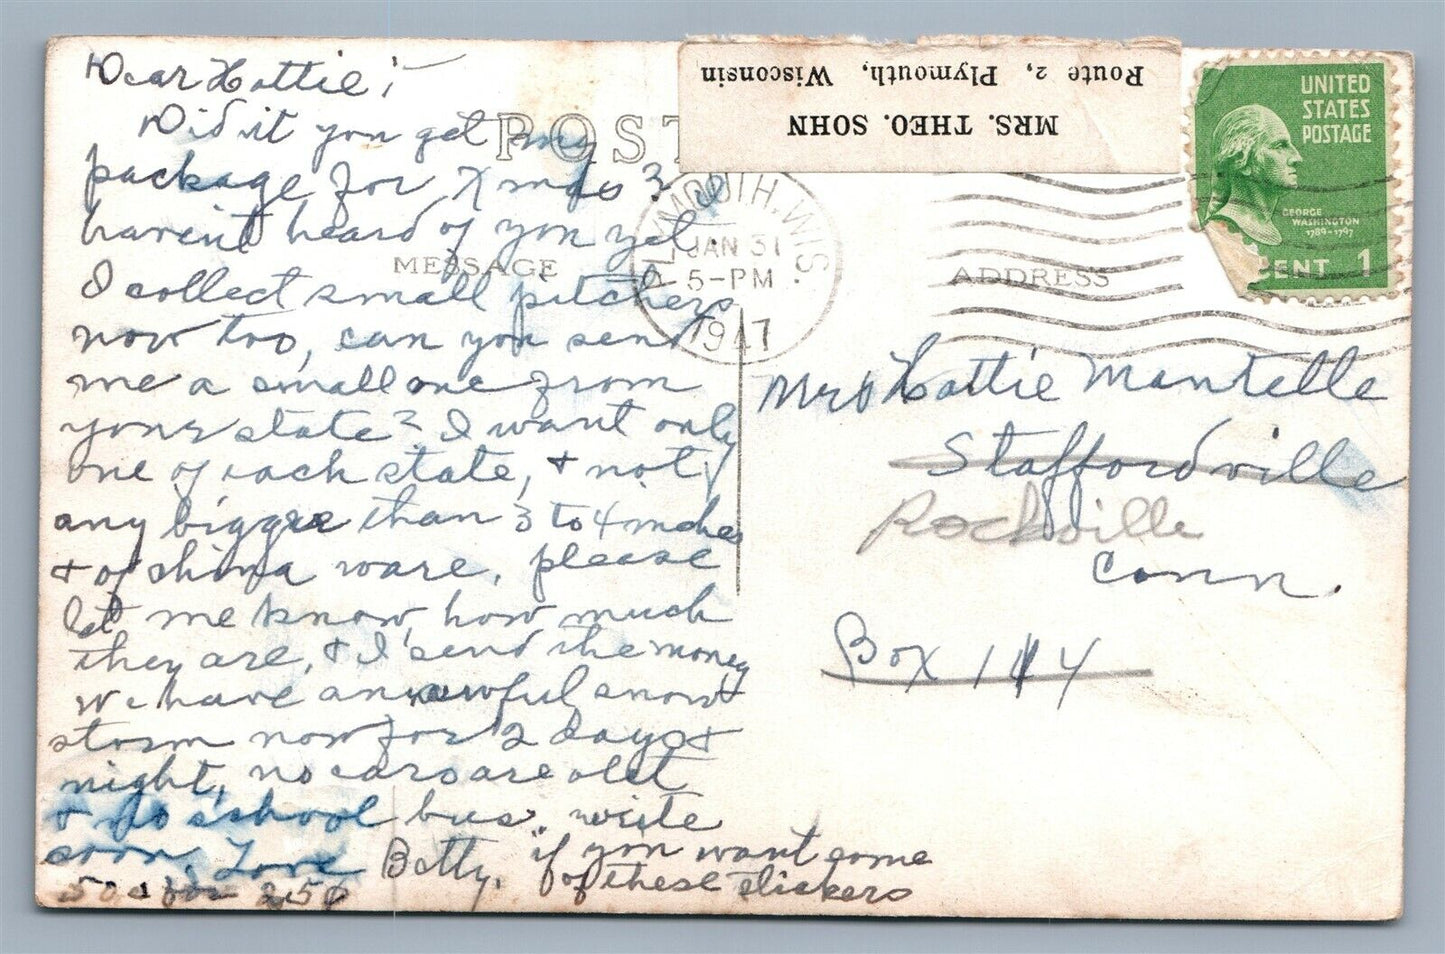 Dear Hattie;
Did it you get my
package for Xmas? I
havent heard of you yet.
I collect small pitchers
now too, can you send
me a small one from
your state? I want only
one of each state, & not
any bigger than 3 to 4 inches
& of china ware, please
let me know how much
they are, & I send the money
We have an awful snow
storm now for 2 days &
night, no cars are out
& no school bus. write
soon, Love Betty. if you want some
of these stickers
50 for 25¢
POST
MESSAGE
MRS. THEO. SOHN
Route 2, Plymouth, Wisconsin
PLYMOUTH, WIS.
JAN 31
5-PM
1947
UNITED
STATES
POSTAGE
GEORGE
WASHINGTON
1789-1797
CENT 1
ADDRESS
Mrs Hattie Mantelle
Staffordville
Rockville
Conn.
Box 114